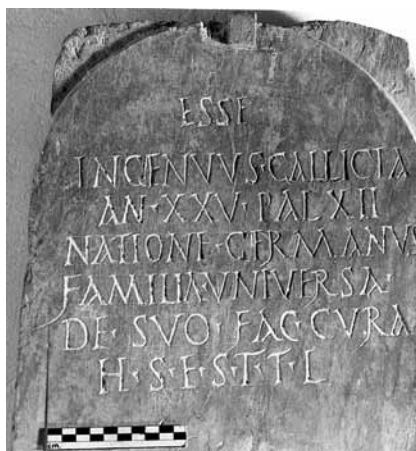 ESSE
INGENVVS·GALLICIA
AN·XXV·PAL XII
NATIONE·GERMANVS
FAMILIA·VNIVERSA·
DE·SVO·FAC·CVRA
H·S·E·S·T·T·L
cm